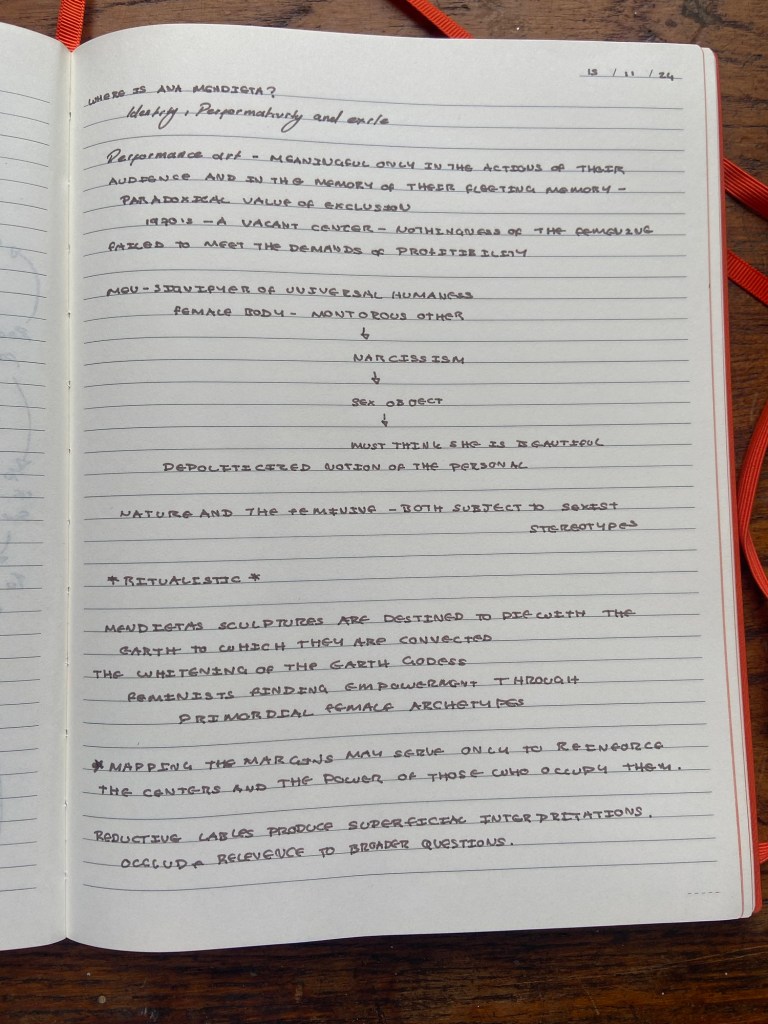 15 / 11 / 24
WHERE IS ANA MENDIETA?
Identity, Performativity and exile
Performance art - MEANINGFUL ONLY IN THE ACTIONS OF THEIR
AUDIENCE AND IN THE MEMORY OF THEIR FLEETING MEMORY -
PARADOXICAL VALUE OF EXCLUSION
1970'S - A VACANT CENTER - NOTHINGNESS OF THE FEMENINE
FAILED TO MEET THE DEMANDS OF PROFITIBILITY
MEN - SIGNIFYER OF UNIVERSAL HUMANESS
FEMALE BODY - MONTOROUS OTHER
↓
NARCISSISM
↓
SEX OBJECT
↓
MUST THINK SHE IS BEAUTIFUL
DEPOLITICIZED NOTION OF THE PERSONAL
NATURE AND THE FEMININE - BOTH SUBJECT TO SEXIST
STEREOTYPES
*RITUALISTIC*
MENDIETAS SCULPTURES ARE DESTINED TO DIE WITH THE
EARTH TO WHICH THEY ARE CONNECTED
THE WHITENING OF THE EARTH GODESS
FEMINISTS FINDING EMPOWERMENT THROUGH
PRIMORDIAL FEMALE ARCHETYPES
*MAPPING THE MARGINS MAY SERVE ONLY TO REINFORCE
THE CENTERS AND THE POWER OF THOSE WHO OCCUPY THEM.
REDUCTIVE LABLES PRODUCE SUPERFICIAL INTERPRITATIONS.
OCCLUDE RELEVENCE TO BROADER QUESTIONS.